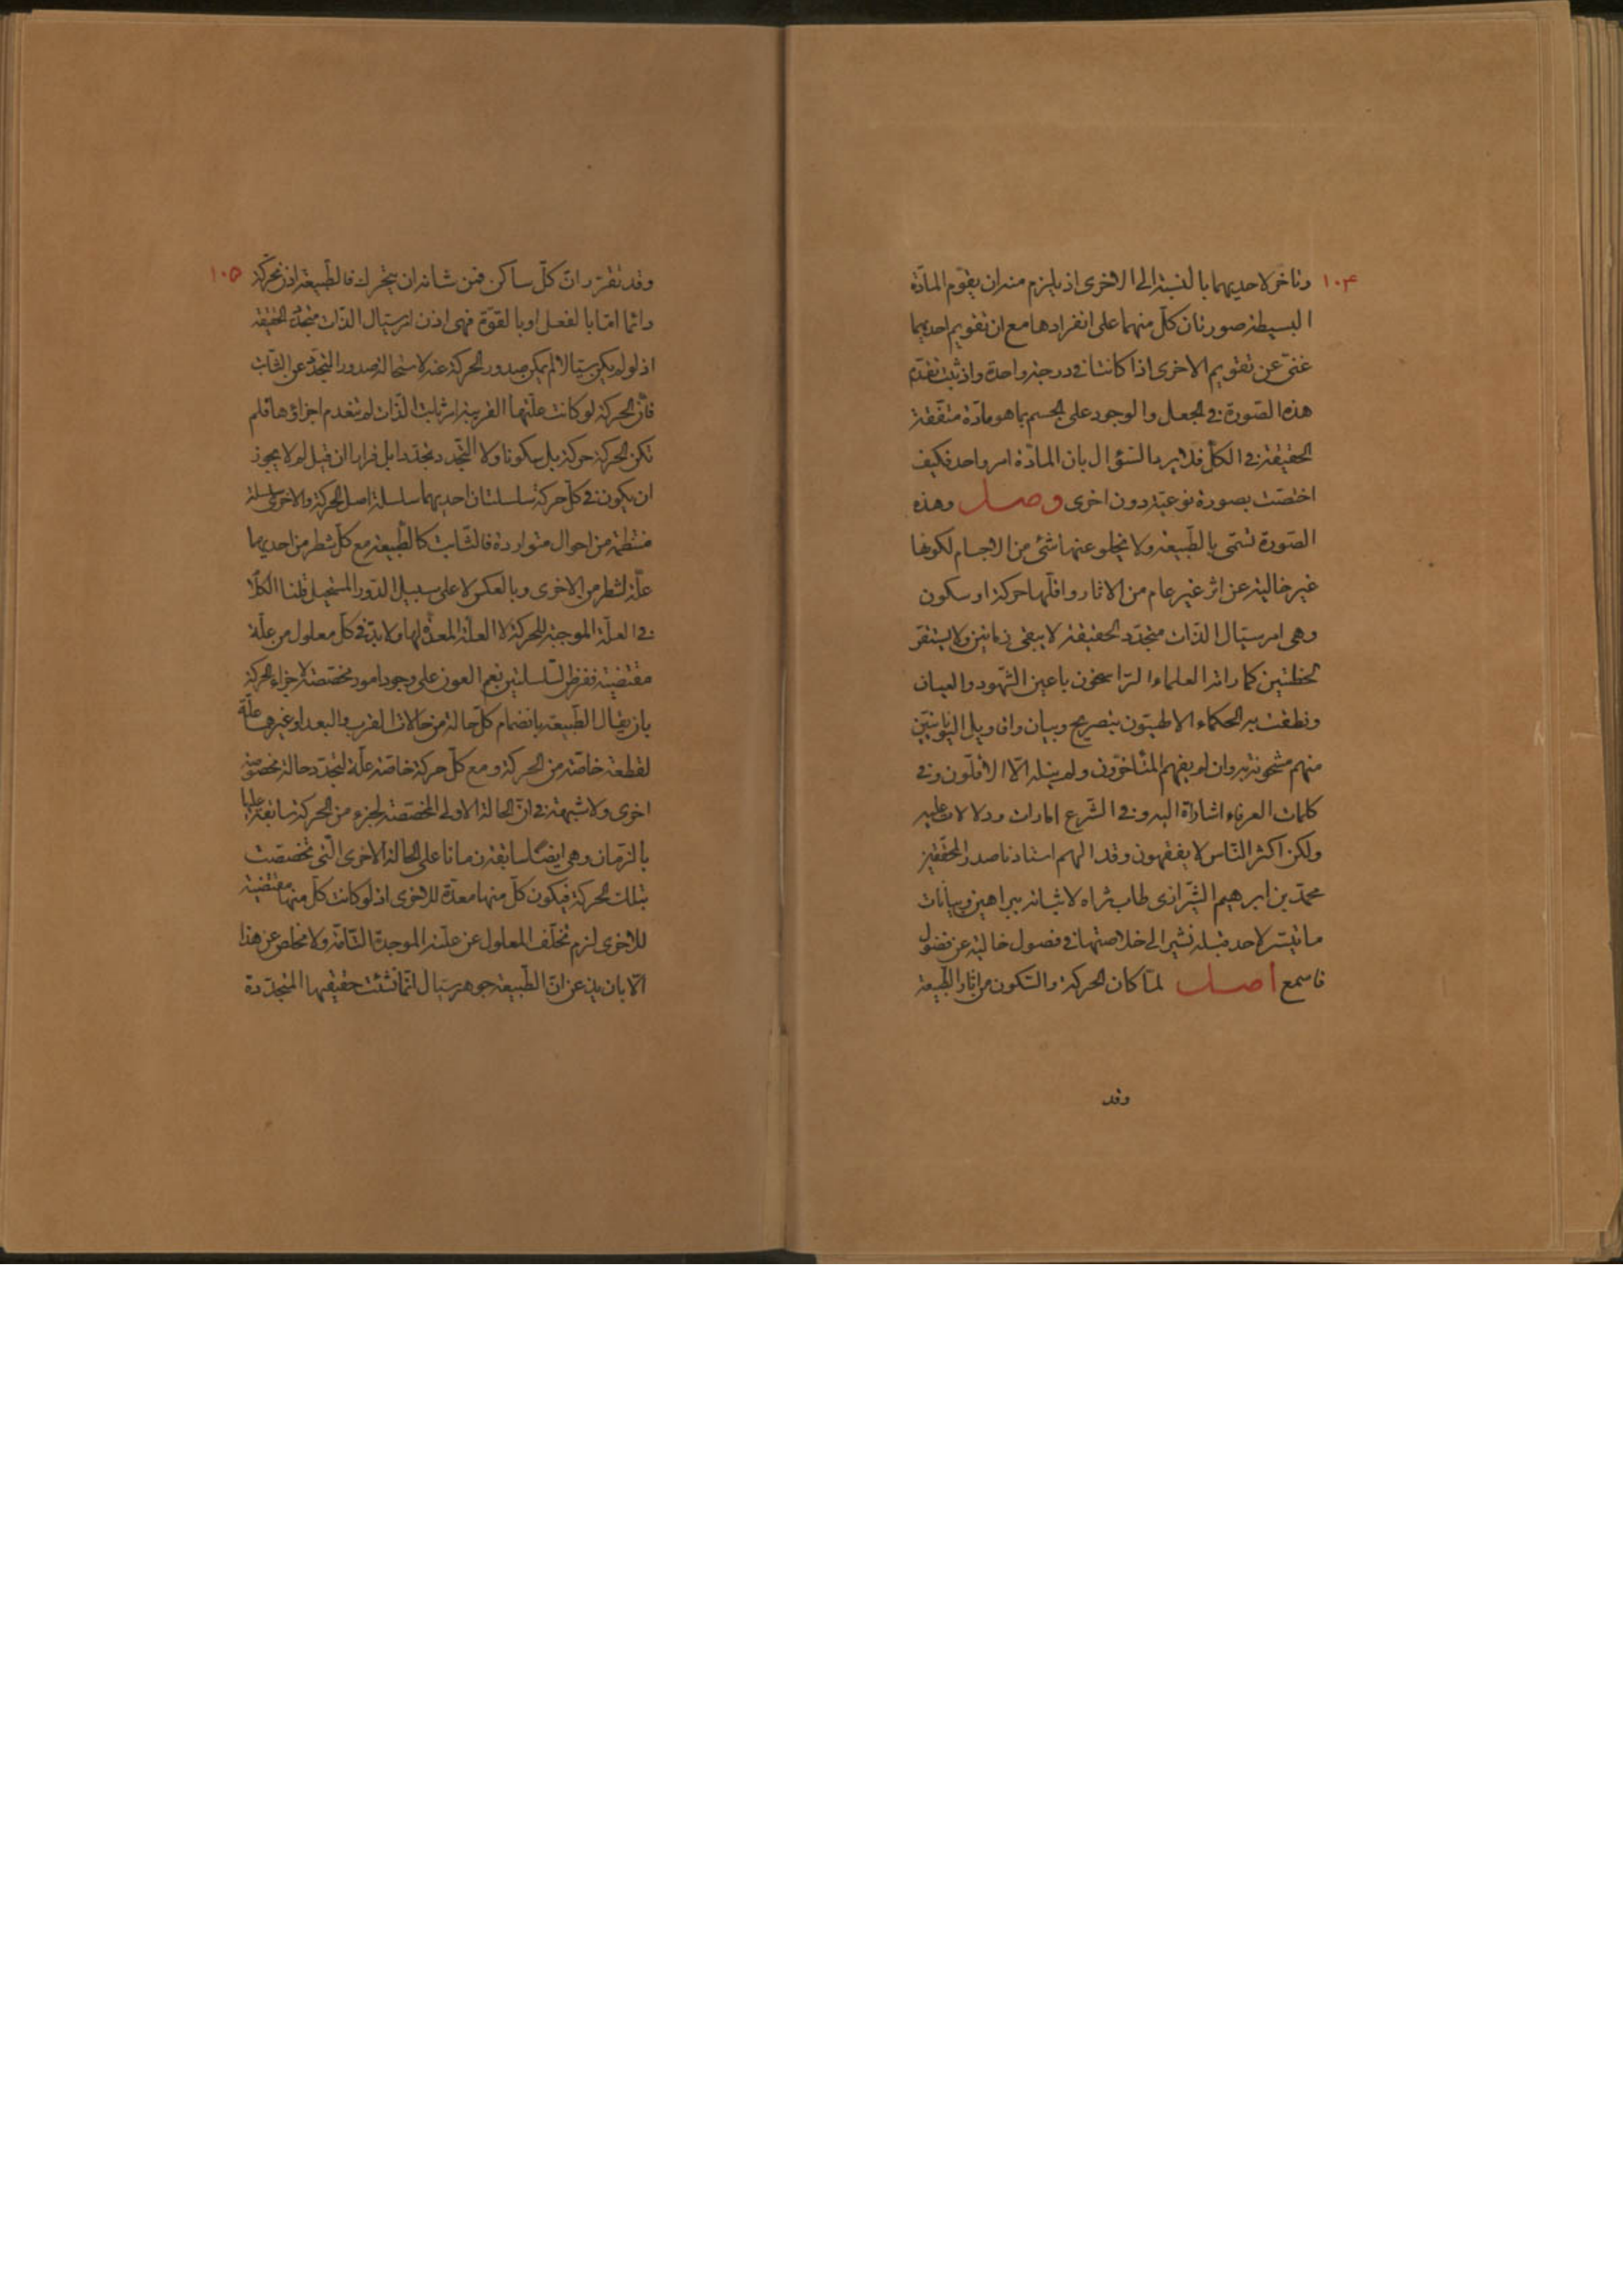 ١٠٤
وتاخر لاحديهما بالنسبة الى الاخرى اذ يلزم منه ان يقوّم المادّة
البسيطة صورتان كلّ منهما على انفرادها مع ان تقويم احديهما
غنىّ عن تقويم الاخرى اذا كانتا فى درجة واحدة واذ ثبت تقدّم
هذه الصّورة فى الجعل والوجود على الجسم بما هو مادّة متّفقة
الحقيقة فى الكلّ فلا يرد السّؤال بان المادّة امر واحد فكيف
اختصّت بصورة نوعيّة دون اخرى وصل وهذه
الصّورة تسمّى بالطّبيعة ولا يخلو عنها شئ من الاجسام لكونها
غير خالية عن اثر غير عام من الاثار واقلّها حركة او سكون
وهى امر سيّال الذّات متجدّد الحقيقة لا يبقى زمانين ولا يستقرّ
لحظتين كما راه العلماء الرّاسخون باعين الشّهود والعيان
ونطقت به الحكماء الالهيّون بتصريح وبيان واقاويل اليونانيّين
منهم مشحونة به وان لم يفهم المتأخّرون ولم ينله الّا الاقلّون وفى
كلمات العرفاء اشارات اليه وفى الشّرع امارات ودلالات عليه
ولكن اكثر النّاس لا يفقهون وقد الهم استادنا صدر المحقّقين
محمّد بن ابرهيم الشّيرازى طاب ثراه لاثباته ببراهين وبيانات
ما تيسّر لاحد قبله نشير الى خلاصتها فى فصول خالية عن فضول
فاسمع اصل لمّا كان الحركة والسّكون من اثار الطّبيعة
وقد
١٠٥
وقد تقرّر انّ كلّ ساكن فمن شانه ان يتحرك فالطّبيعة اذن محرّكة
دائما امّا بالفعل او بالقوّة فهى اذن امر سيّال الذّات متجدّد الحقيقة
اذ لو لم يكن سيّالا لم يمكن صدور الحركة عنه لاستحالة صدور المتجدّد عن الثّابت
فانّ الحركة لو كانت علّتها القريبة امر ثابت الذّات لم تنعدم اجزاؤها فلم
تكن الحركة حركة بل سكونا ولا التّجدد تجدّدا بل قرارا ان قيل لم لا يجوز
ان يكون فى كلّ حركة سلسلتان احديهما سلسلة اصل الحركة والاخرى سلسلة
منتظمة من احوال متواردة فالثّابت كالطّبيعة مع كلّ شطر من احديهما
علّة لشطر من الاخرى وبالعكس لا على سبيل الدّور المستحيل قلنا الكلام
فى العلّة الموجبة للحركة لا العلّة المعدّة لها ولا بدّ فى كلّ معلول من علّة
مقتضية ففرض السّلسلتين نعم العون على وجود امور مخصّصة لاجزاء الحركة
بان يقال الطّبيعة بانضمام كلّ حالة من حالات القرب والبعد او غيرهما علّة
لقطعة خاصّة من الحركة ومع كلّ حركة خاصّة علّة لتجدّد حالة مخصوصة
اخرى ولا شبهة فى انّ الحالة الاولى المخصّصة لجزء من الحركة سابقة عليها
بالزّمان وهى ايضًا سابقة زمانا على الحالة الاخرى الّتى تخصّصت
بتلك الحركة فيكون كلّ منها معدّة للاخرى اذ لو كانت كلّ منها مقتضية
للاخرى لزم تخلّف المعلول عن علّته الموجدة التّامّة ولا مخلص عن هذا
الّا بان يذعن انّ الطّبيعة جوهر سيّال انّما نشئت حقيقتها المتجدّدة